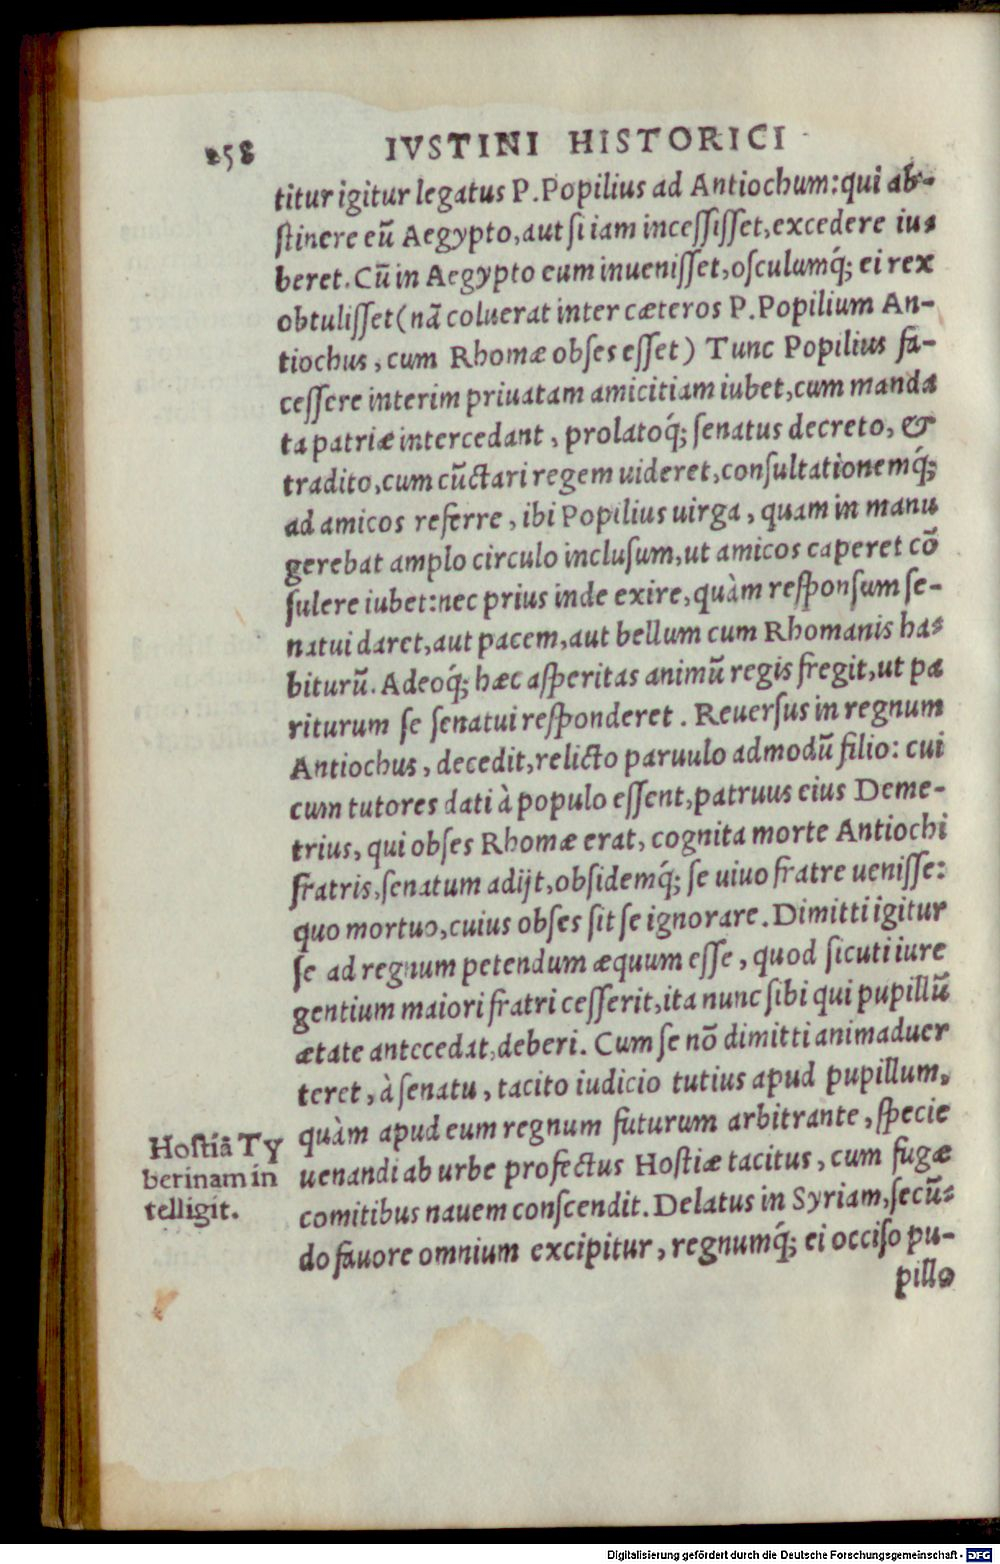 258 IVSTINI HISTORICI
titur igitur legatus P. Popilius ad Antiochum: qui ab-
ſtinere eũ Aegypto, aut ſi iam inceſſiſſet, excedere iu-
beret. Cũ in Aegypto eum inueniſſet, oſculumq́; ei rex
obtuliſſet (nã coluerat inter cæteros P. Popilium An-
tiochus, cum Rhomæ obſes eſſet) Tunc Popilius fa-
ceſſere interim priuatam amicitiam iubet, cum manda
ta patriæ intercedant, prolatoq́; ſenatus decreto, &
tradito, cum cũctari regem uideret, conſultationemq́;
ad amicos referre, ibi Popilius uirga, quam in manu
gerebat amplo circulo incluſum, ut amicos caperet cõ
ſulere iubet: nec prius inde exire, quàm reſponſum ſe-
natui daret, aut pacem, aut bellum cum Rhomanis ha-
biturũ. Adeoq́; hæc aſperitas animũ regis fregit, ut pa
riturum ſe ſenatui reſponderet. Reuerſus in regnum
Antiochus, decedit, relicto paruulo admodũ filio: cui
cum tutores dati à populo eſſent, patruus eius Deme-
trius, qui obſes Rhomæ erat, cognita morte Antiochi
fratris, ſenatum adijt, obſidemq́; ſe uiuo fratre ueniſſe:
quo mortuo, cuius obſes ſit ſe ignorare. Dimitti igitur
ſe ad regnum petendum æquum eſſe, quod ſicuti iure
gentium maiori fratri ceſſerit, ita nunc ſibi qui pupillũ
ætate antecedat, deberi. Cum ſe nõ dimitti animaduer
teret, à ſenatu, tacito iudicio tutius apud pupillum,
quàm apud eum regnum futurum arbitrante, ſpecie
uenandi ab urbe profectus Hoſtiæ tacitus, cum fugæ
comitibus nauem conſcendit. Delatus in Syriam, ſecũ-
do fauore omnium excipitur, regnumq́; ei occiſo pu-
pillo
Hoſtiã Ty
berinam in
telligit.
Digitalisierung gefördert durch die Deutsche Forschungsgemeinschaft - DFG